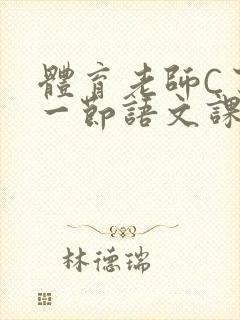 體育老師C
一節語文課
林德瑞